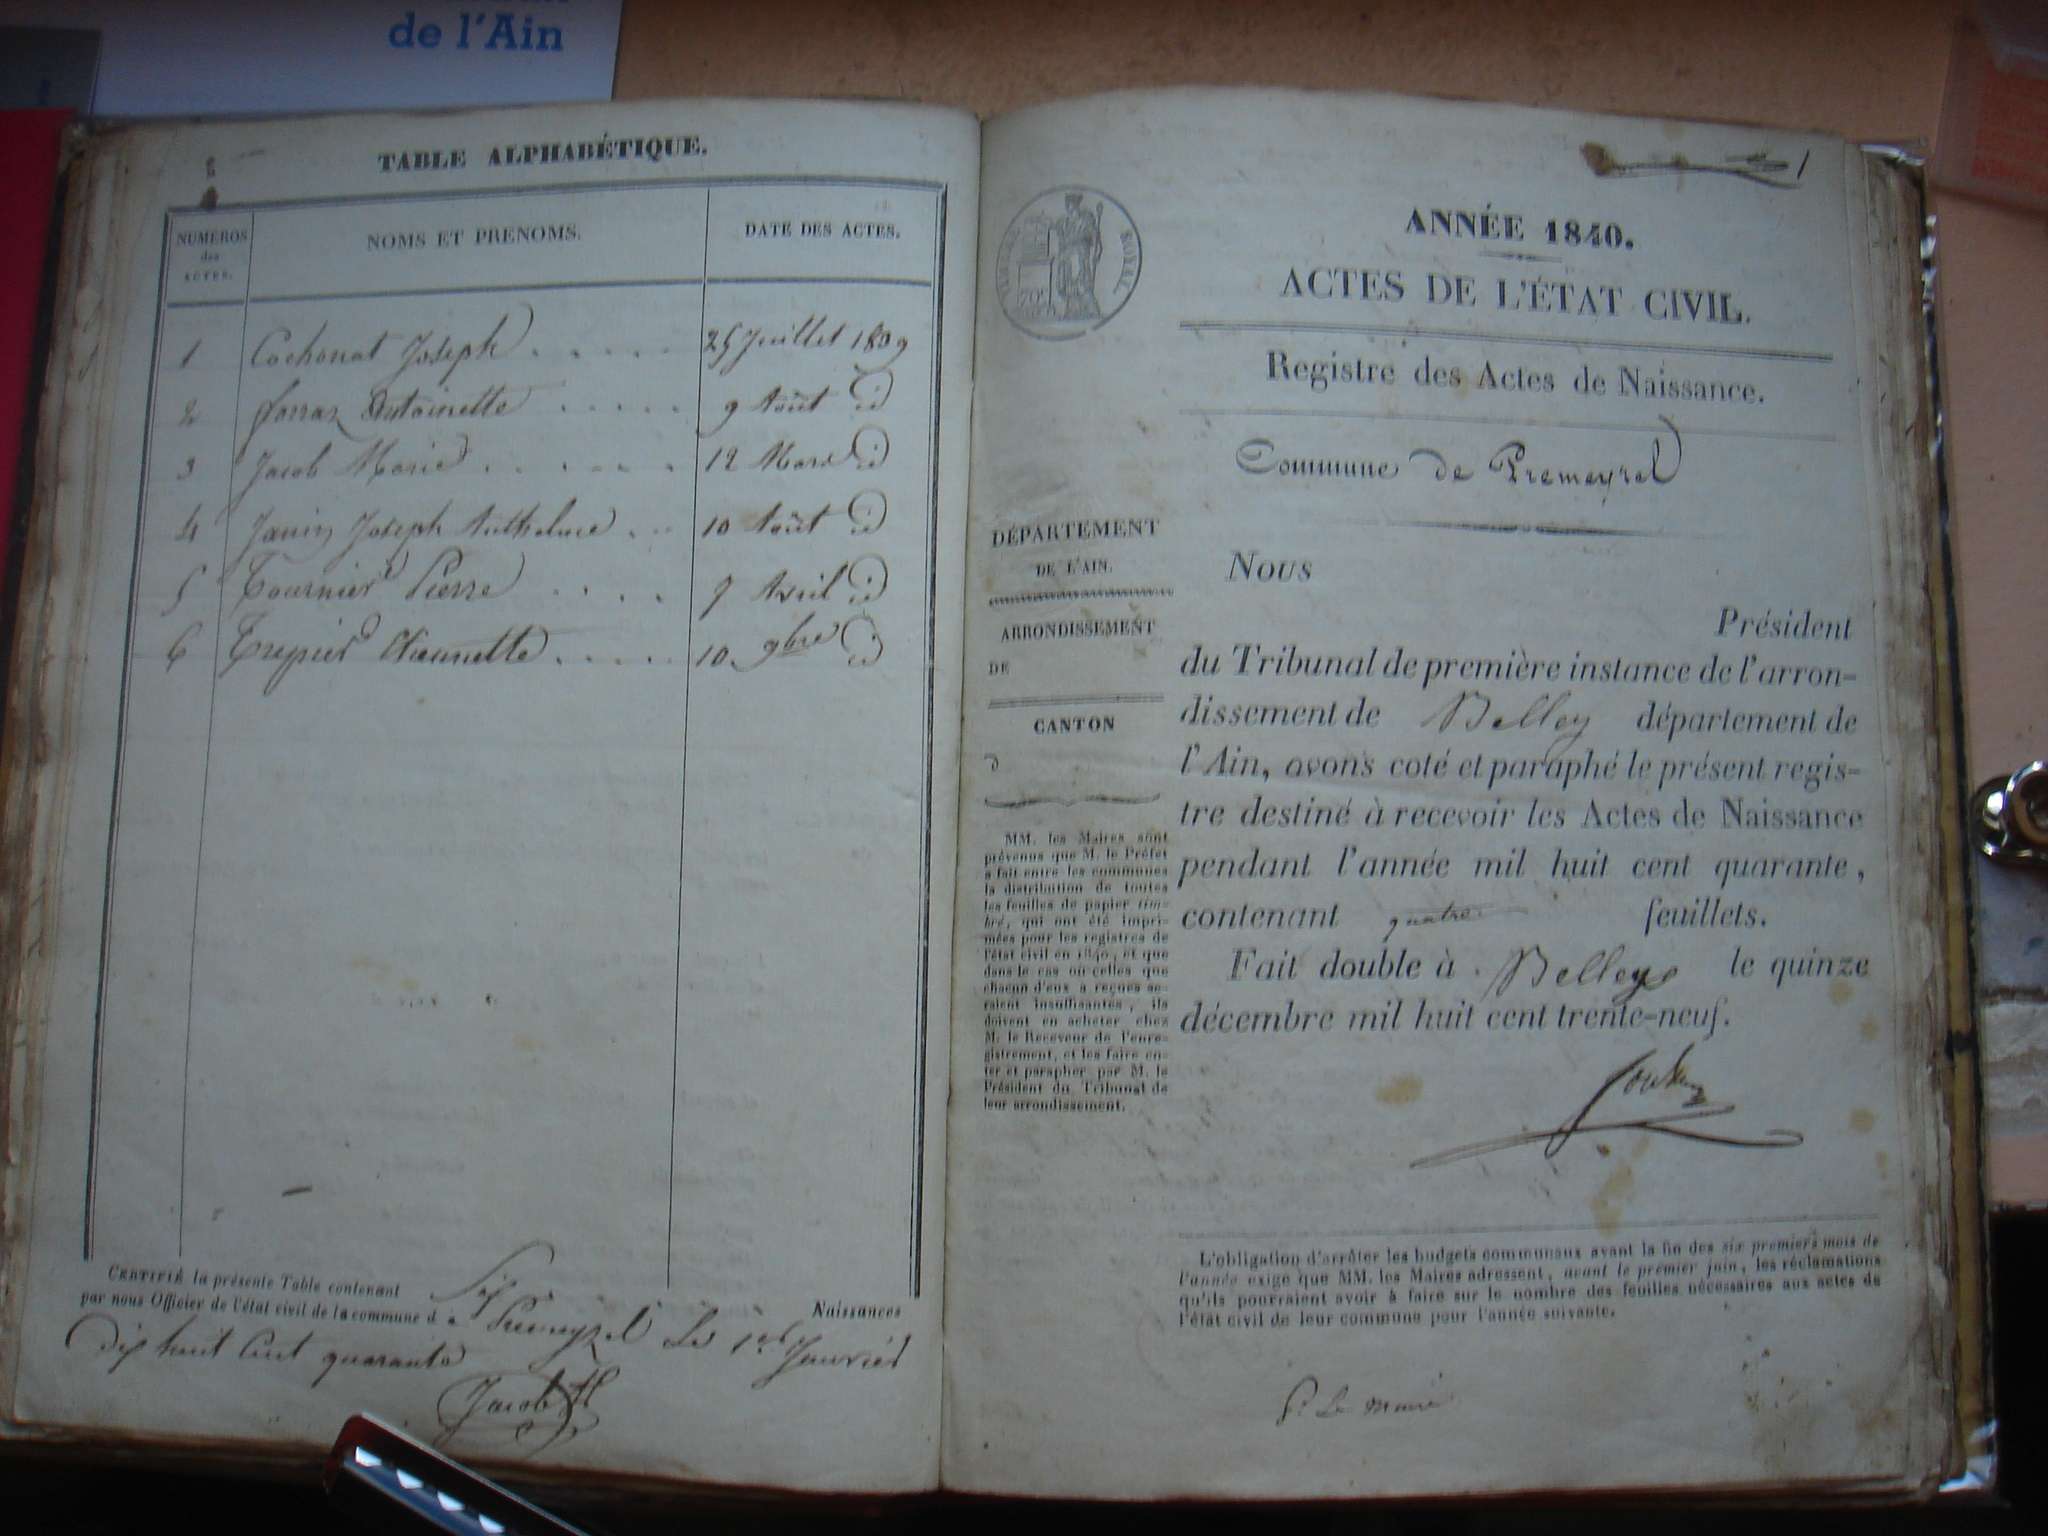 de l'Ain
TABLE ALPHABÉTIQUE.
NUMÉROS des ACTES.
NOMS ET PRENOMS.
DATE DES ACTES.
1 Cochonat Joseph 25 Juillet 1839
2 Antoinette 9 Août id
3 Jacob Marie 12 Mars id
4 Janin Joseph Anthelme 10 Août id
5 Tournier Pierre 7 Avril id
6 Trepier Etiennette 10 9bre id
CERTIFIÉ la présente Table contenant Six Naissances
par nous Officier de l'état civil de la commune d e Premeyzel Le 1er Janvier
dix huit cent quarante
Jacob
1
TIMBRE ROYAL
70c
ANNÉE 1840.
ACTES DE L'ÉTAT CIVIL.
Registre des Actes de Naissance.
Commune de Premeyzel
DÉPARTEMENT
DE L'AIN.
ARRONDISSEMENT
DE
CANTON
d
MM. les Maires sont
prévenus que M. le Préfet
a fait entre les communes
la distribution de toutes
les feuilles de papier tim-
bré, qui ont été impri-
mées pour les registres de
l'état civil en 1840, et que
dans le cas où celles que
chacun d'eux a reçues se-
raient insuffisantes, ils
doivent en acheter chez
M. le Receveur de l'enre-
gistrement, et les faire co-
ter et parapher par M. le
Président du Tribunal de
leur arrondissement.
Nous
Président
du Tribunal de première instance de l'arron-
dissement de Belley département de
l'Ain, avons coté et paraphé le présent regis-
tre destiné à recevoir les Actes de Naissance
pendant l'année mil huit cent quarante,
contenant quatre feuillets.
Fait double à Belley le quinze
décembre mil huit cent trente-neuf.
L'obligation d'arrêter les budgets communaux avant la fin des six premiers mois de
l'année exige que MM. les Maires adressent, avant le premier juin, les réclamations
qu'ils pourraient avoir à faire sur le nombre des feuilles nécessaires aux actes de
l'état civil de leur commune pour l'année suivante.
Le maire